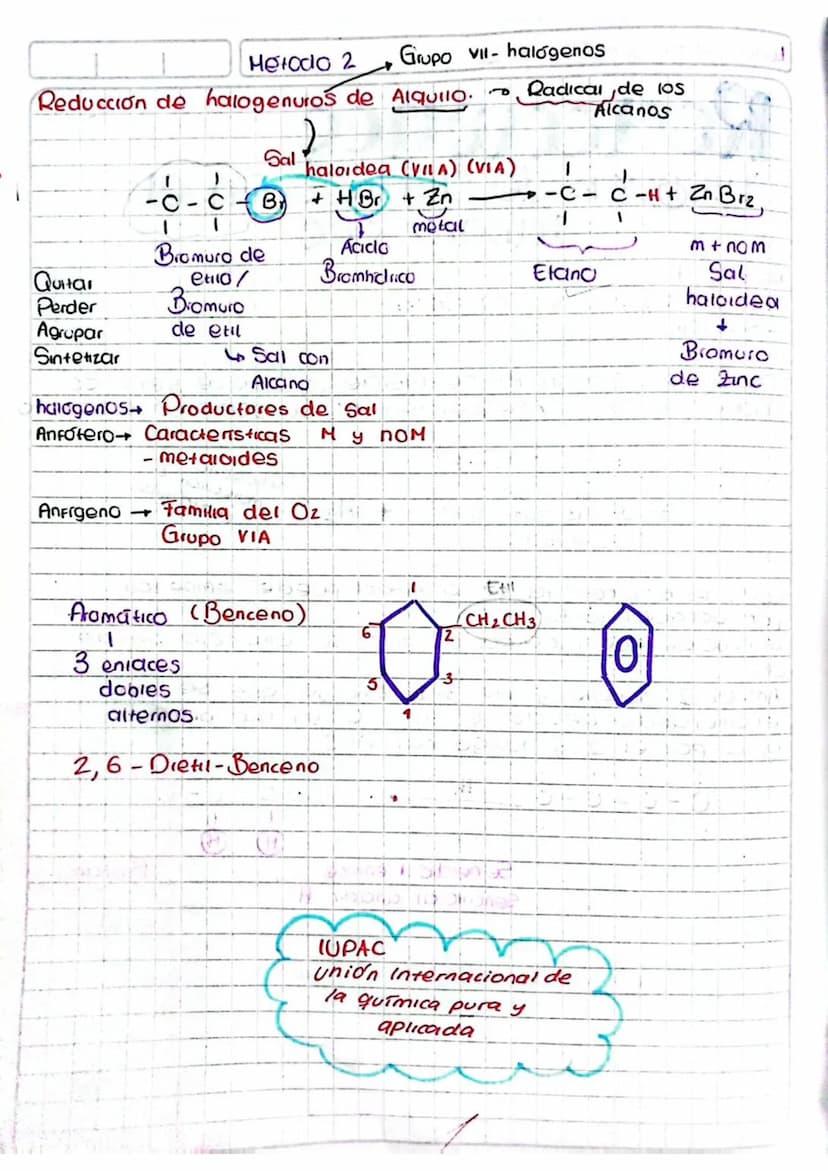 Método 2 → Grupo VII- halógenos
Reducción de halogenuros de Alquilo. → Radical de los
Alcanos
Sal
haloidea (VIIA) (VIA)
-C - C - Br + HBr + Zn → -C - C -H + ZnBr2
metal
Bromuro de
etilo /
Bromuro
de etil
↳ Sal con
Alcano
Ácido
Bromhídrico
Etano
m + nom
Sal
haloidea
↓
Bromuro
de Zinc
Quitar
Perder
Agrupar
Sintetizar
halógenos→ Productores de Sal
Anfótero→ Características M y noM
- metaloides
Anfígeno → Familia del O2
Grupo VIA
Aromático (Benceno)
3 enlaces
dobles
alternos
Etil
CH2CH3
1
2
3
4
5
6
2,6 - Dietil-Benceno
IUPAC
Unión Internacional de
la química pura y
aplicada